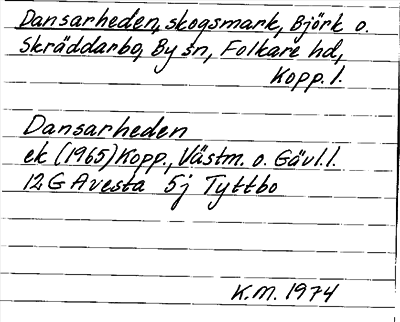 Dansarheden, skogsmark, Björk o.
Skräddarbo, By sn, Folkare hd,
Kopp. l.
Dansarheden
ek (1965) Kopp., Västm. o. Gävl. l.
12 G Avesta 5j Tyttbo
K.M. 1974